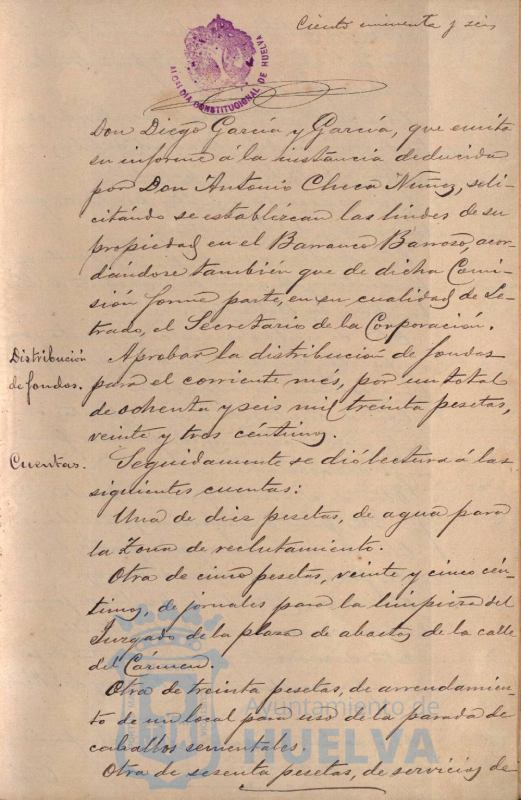 Ciento noventa y seis
ALCALDIA CONSTITUCIONAL DE HUELVA
Don Diego Garcia y Garcia, que emita
su informe á la instancia deducida
por Don Antonio Checa Nuñez, soli-
citándo se establezcan las lindes de su
propiedad en el Barranco Barroso, acor-
dándose también que de dicha Comi-
sión forme parte, en su cualidad de Le-
trado, el Secretario de la Corporación.
Distribución de fondos.
Aprobar la distribución de fondos
para el corriente més, por un total
de ochenta y seis mil treinta pesetas,
veinte y tres céntimos.
Cuentas.
Seguidamente se dió lectura á las
siguientes cuentas:
Una de diez pesetas, de agua para
la Zona de reclutamiento.
Otra de cinco pesetas, veinte y cinco cén-
timos, de jornales para la limpieza del
Juzgado de la plaza de abastos de la calle
del Cármen.
Otra de treinta pesetas, de arrendamien-
to de un local para uso de la parada de
caballos sementales.
Otra de sesenta pesetas, de servicios de
Ayuntamiento de
HUELVA